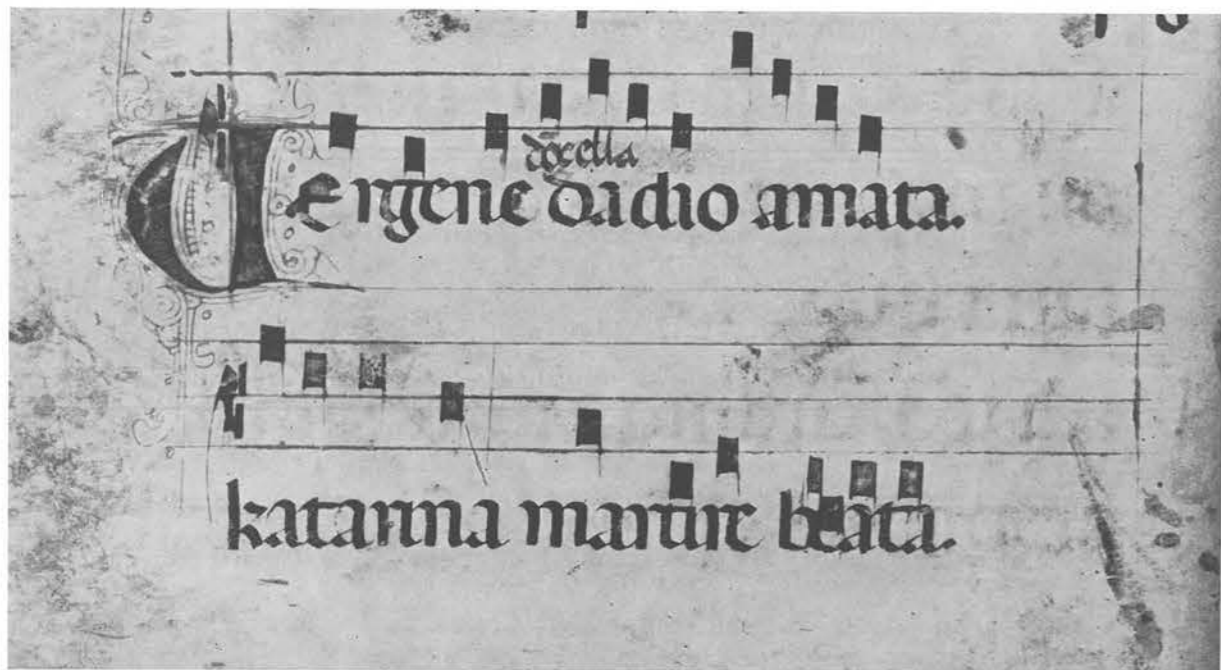 dōcella
Vergene dadio amata.
katarina martire beata.